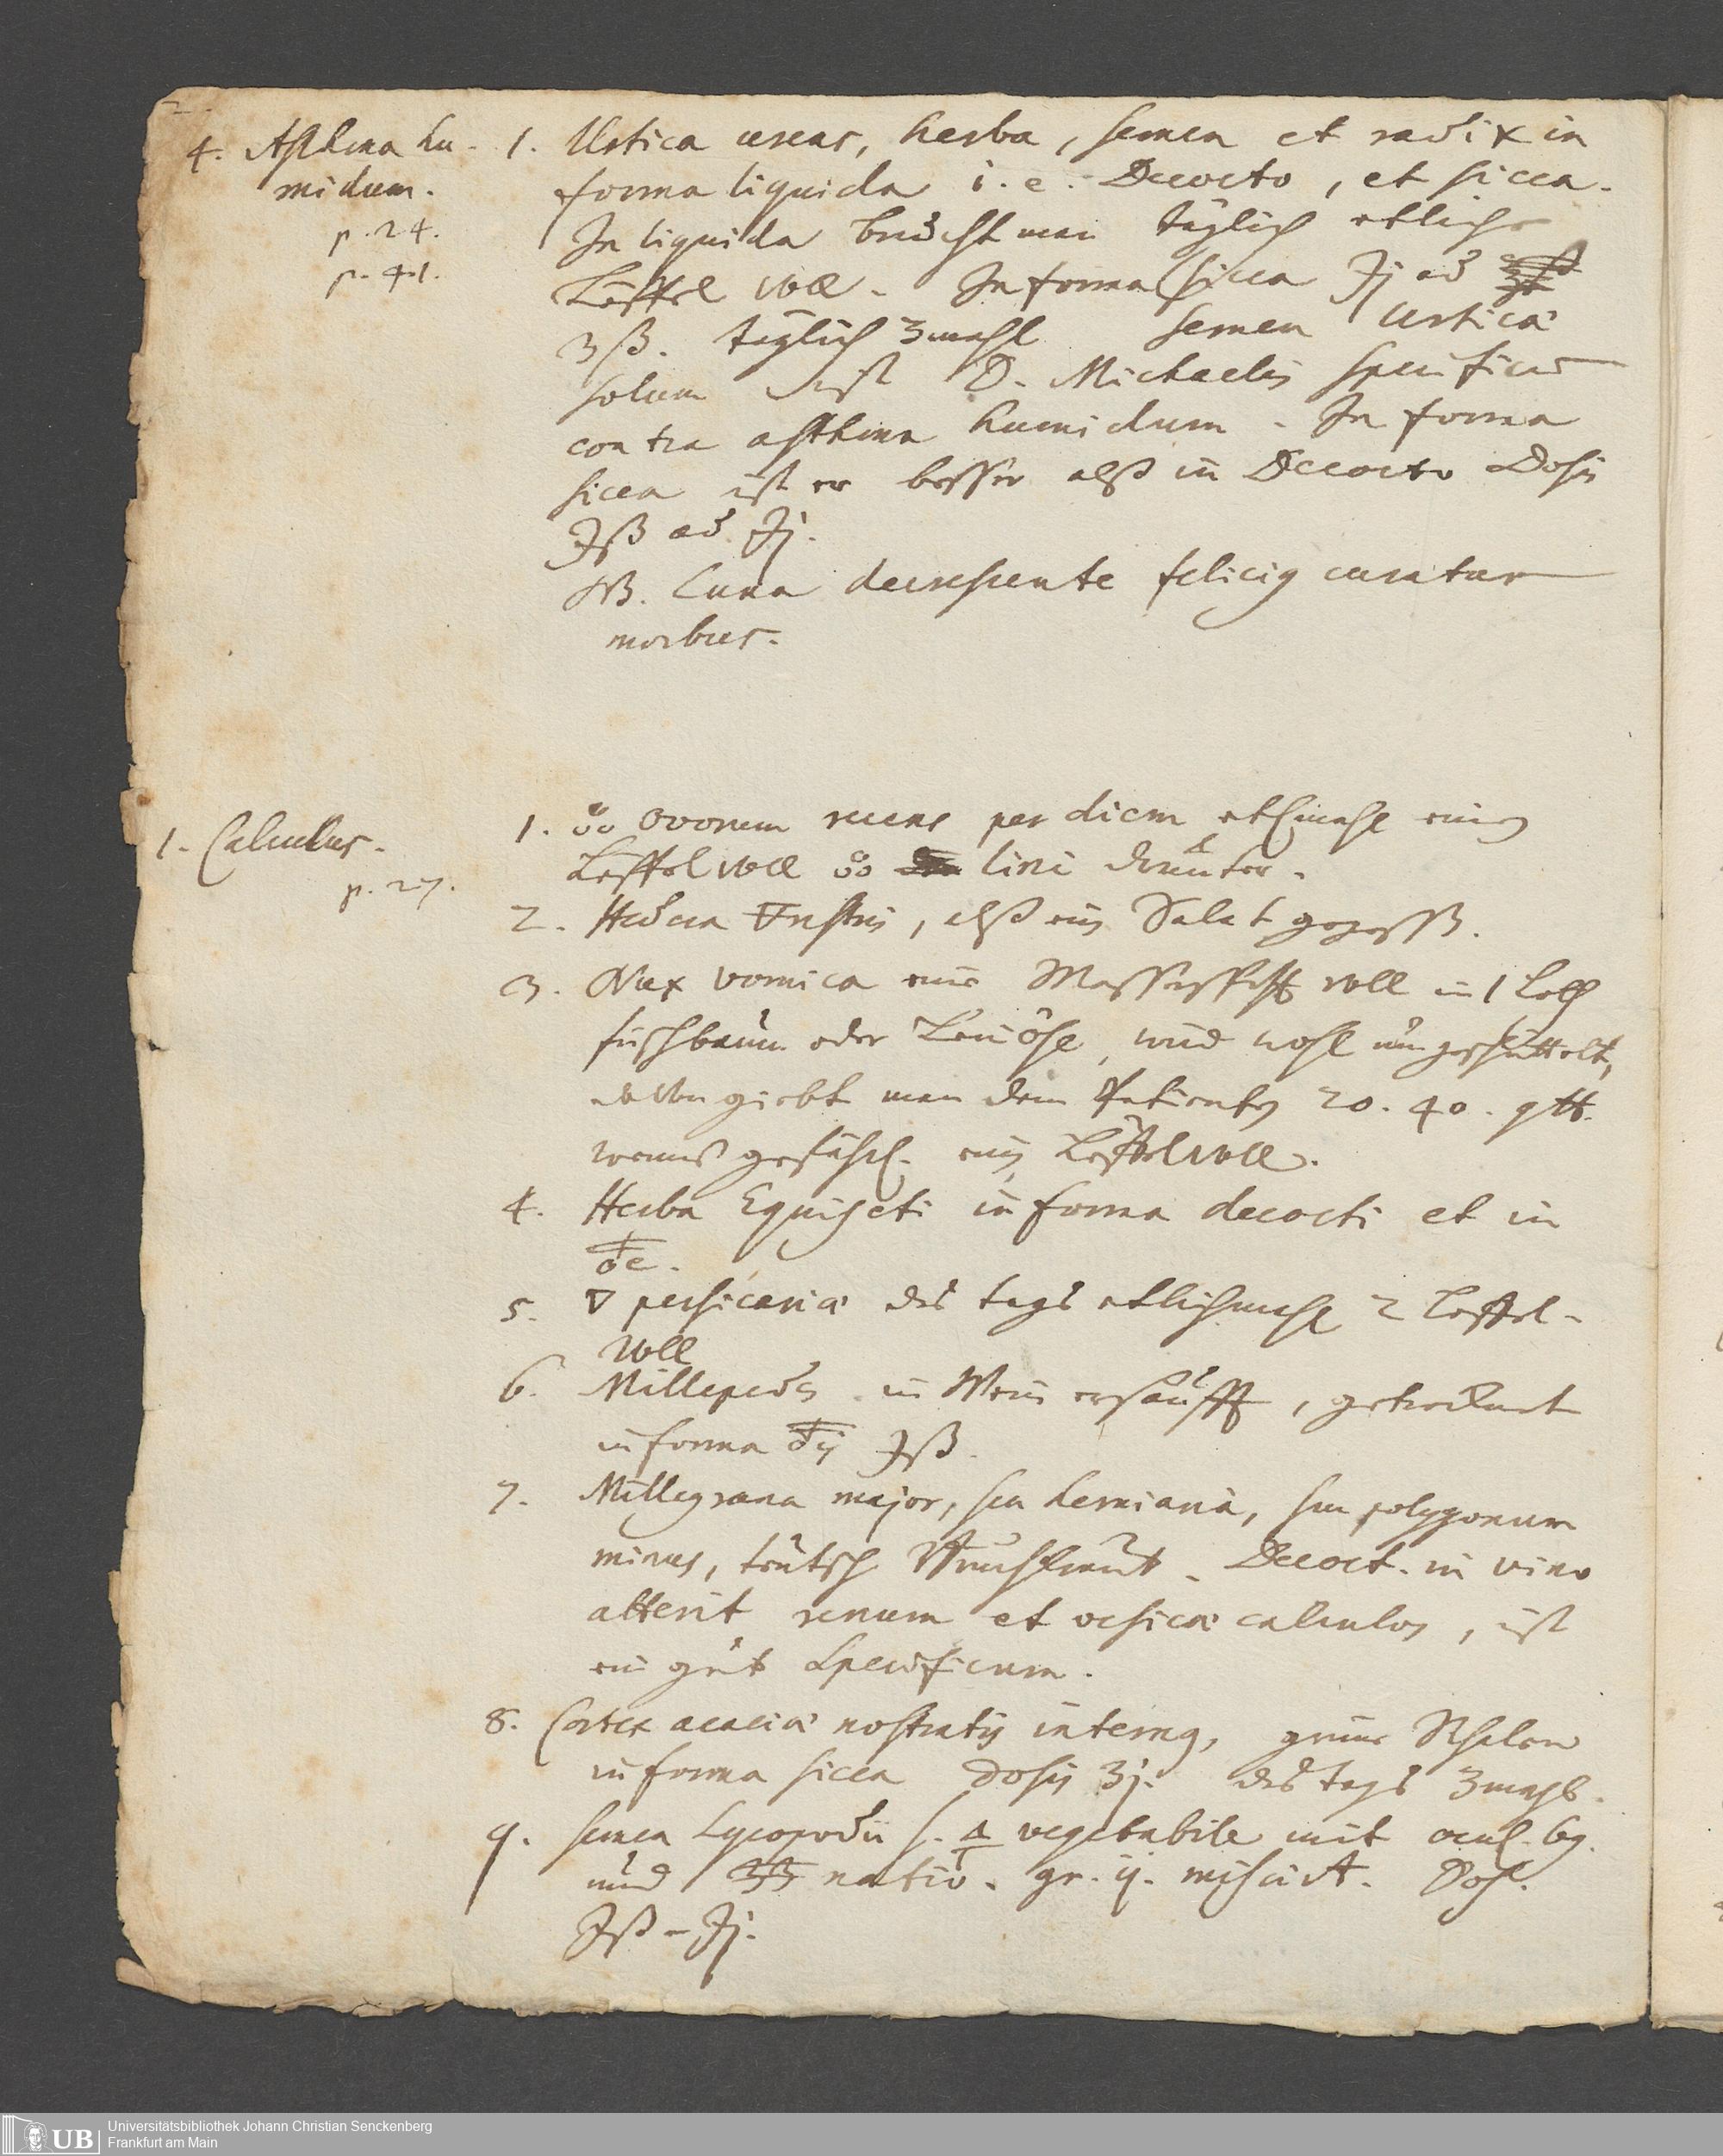 2.
4. Asthma hu-
midum.
p. 24.
p. 41.
1. Urtica urens, herba, semen et radix in
forma liquida i. e. Decocto, et sicca.
In liquida braucht man täglich etliche
Löffel voll. In forma sicca ℈j ad
ʒß. täglich 3mahl semen Urticæ
solum ist D. Michaelis specificum
contra asthma humidum. In forma
sicca ist er besser alß in Decocto Dosis
℈ß ad ℈j.
NB. Luna decrescente felicius curatur
morbus.
1. Calculus.
p. 27.
1. ovorum recens per diem etlmahl einen
Löffel voll lini darunter.
2. Hedera 🜃restris, alß ein Salat gegessen.
3. Nux vomica eine Messerspitz voll in 1 Loth
oder Leinöhl, und wohl umgeschüttelt,
davon giebt man dem Patienten 20. 40. gtt.
wenns gefährl. ein Löffel voll.
4. Herba Equiseti in forma decocti et in
5. 🜄 persicariæ des tags etlichmahl 2 Löffel-
voll
6. Millepedes in Wein ersäufft, getrocknet
in forma ℈ß.
7. Millegrana major, seu herniaria, seu polygonum
minus, teutsch Bruchkraut. Decoct. in vino
atterit renum et vesicæ calculos, ist
ein gut Specificum.
8. Cortex acaciæ nostratis internus, grüne Schalen
in forma sicca Dosis ʒj. des tags 3mahl.
9. semen Lycopodii s. 🜍 vegetabile mit ocul. 69.
und nativ. gr. ij. miscirt. Dos.
℈ß - ℈j.
Universitätsbibliothek Johann Christian Senckenberg
Frankfurt am Main
UB